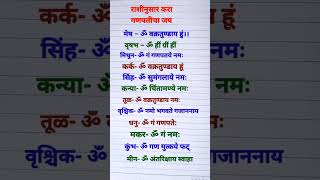 राशीनुसार करा
गणपतीचा जप
मेष – ॐ वक्रतुण्डाय हुं।।
वृषभ – ॐ ह्रीं ग्रीं ह्रीं
मिथुन – ॐ गं गणपतये नमः
कर्क- ॐ वक्रतुण्डाय हूं
सिंह- ॐ सुमंगलाये नमः
कन्या- ॐ चिंतामण्ये नमः
तूळ – ॐ वक्रतुण्डाय नमः
वृश्चिक- ॐ नमो भगवते गजाननाय
धनु- ॐ गं गणपते:
मकर- ॐ गं नमः
कुंभ- ॐ गण मुत्कये फट्
मीन- ॐ अंतरिक्षाय स्वाहा
सिंह-
कन्या-
वृश्चिक-
गजाननाय